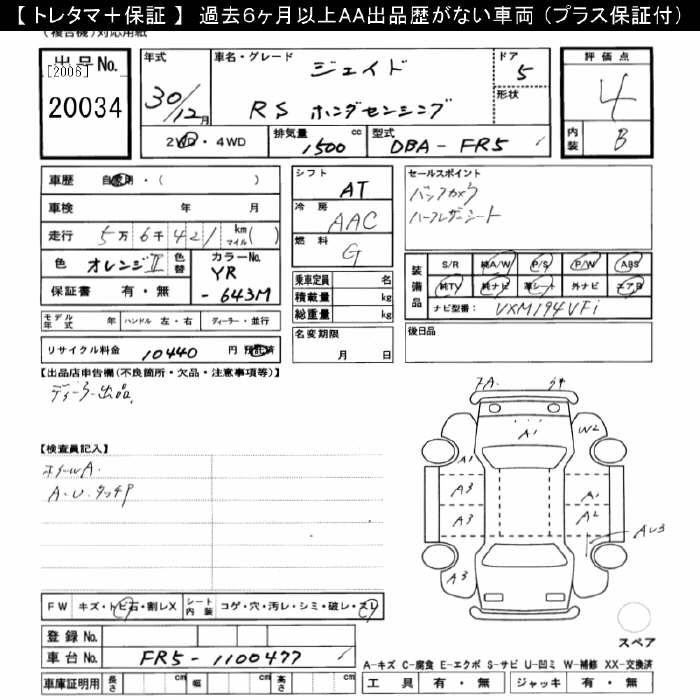 【 トレタマ＋保証 】 過去６ヶ月以上ＡＡ出品歴がない車両（プラス保証付）
(複合機)対応用紙
出品No.
[2006]
20034
年式
30/12月
車名・グレード
ジェイド
RS ホンダセンシング
ドア
5
形状
2WD・4WD
排気量
1500 cc
型式
DBA-FR5
評価点
4
内装
B
車歴 自家用・( )
車検 年 月
走行 5万6千421 km マイル( )
色 オレンジII
色替
カラーNo.
YR
-643M
保証書 有・無
シフト
AT
冷房
AAC
燃料
G
乗車定員 名
積載量 kg
総重量 kg
セールスポイント
バックカメラ
ハーフレザーシート
装備品
S/R 純A/W P/S P/W ABS
純TV 純ナビ 革シート 外ナビ エアB
ナビ型番: VXM194VFi
モデル年式 年
ハンドル 左・右
ディーラー・並行
名変期限
月 日
後日品
リサイクル料金 10440 円 預託済
【出品店申告欄(不良箇所・欠品・注意事項等)】
ディーラー出品
【検査員記入】
ホイールA.
A.U.タッチP
A1
W2
A1
A3
A3
A1
A2
AU3
A3
FW キズ・トビ石・割レX
シート内装 コゲ・穴・汚レ・シミ・破レ・スレ
登録No.
車台No. FR5-1100477
スペア
A-キズ C-腐食 E-エクボ S-サビ U-凹ミ W-補修 XX-交換済
車庫証明用 長さ cm 幅 cm 高さ cm
工具 有・無 ジャッキ 有・無